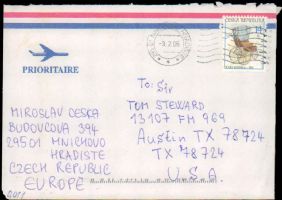 ČESKÁ REPUBLIKA
-3.2.06
PRIORITAIRE
To: Sir
TOM STEWARD
13107 FM 969
Austin TX 78724
TX 78724
U.S.A.
MIROSLAV CESKA
BUDOVCOVA 394
29501 MNICHOVO
HRADISTE
CZECH REPUBLIC
EUROPE